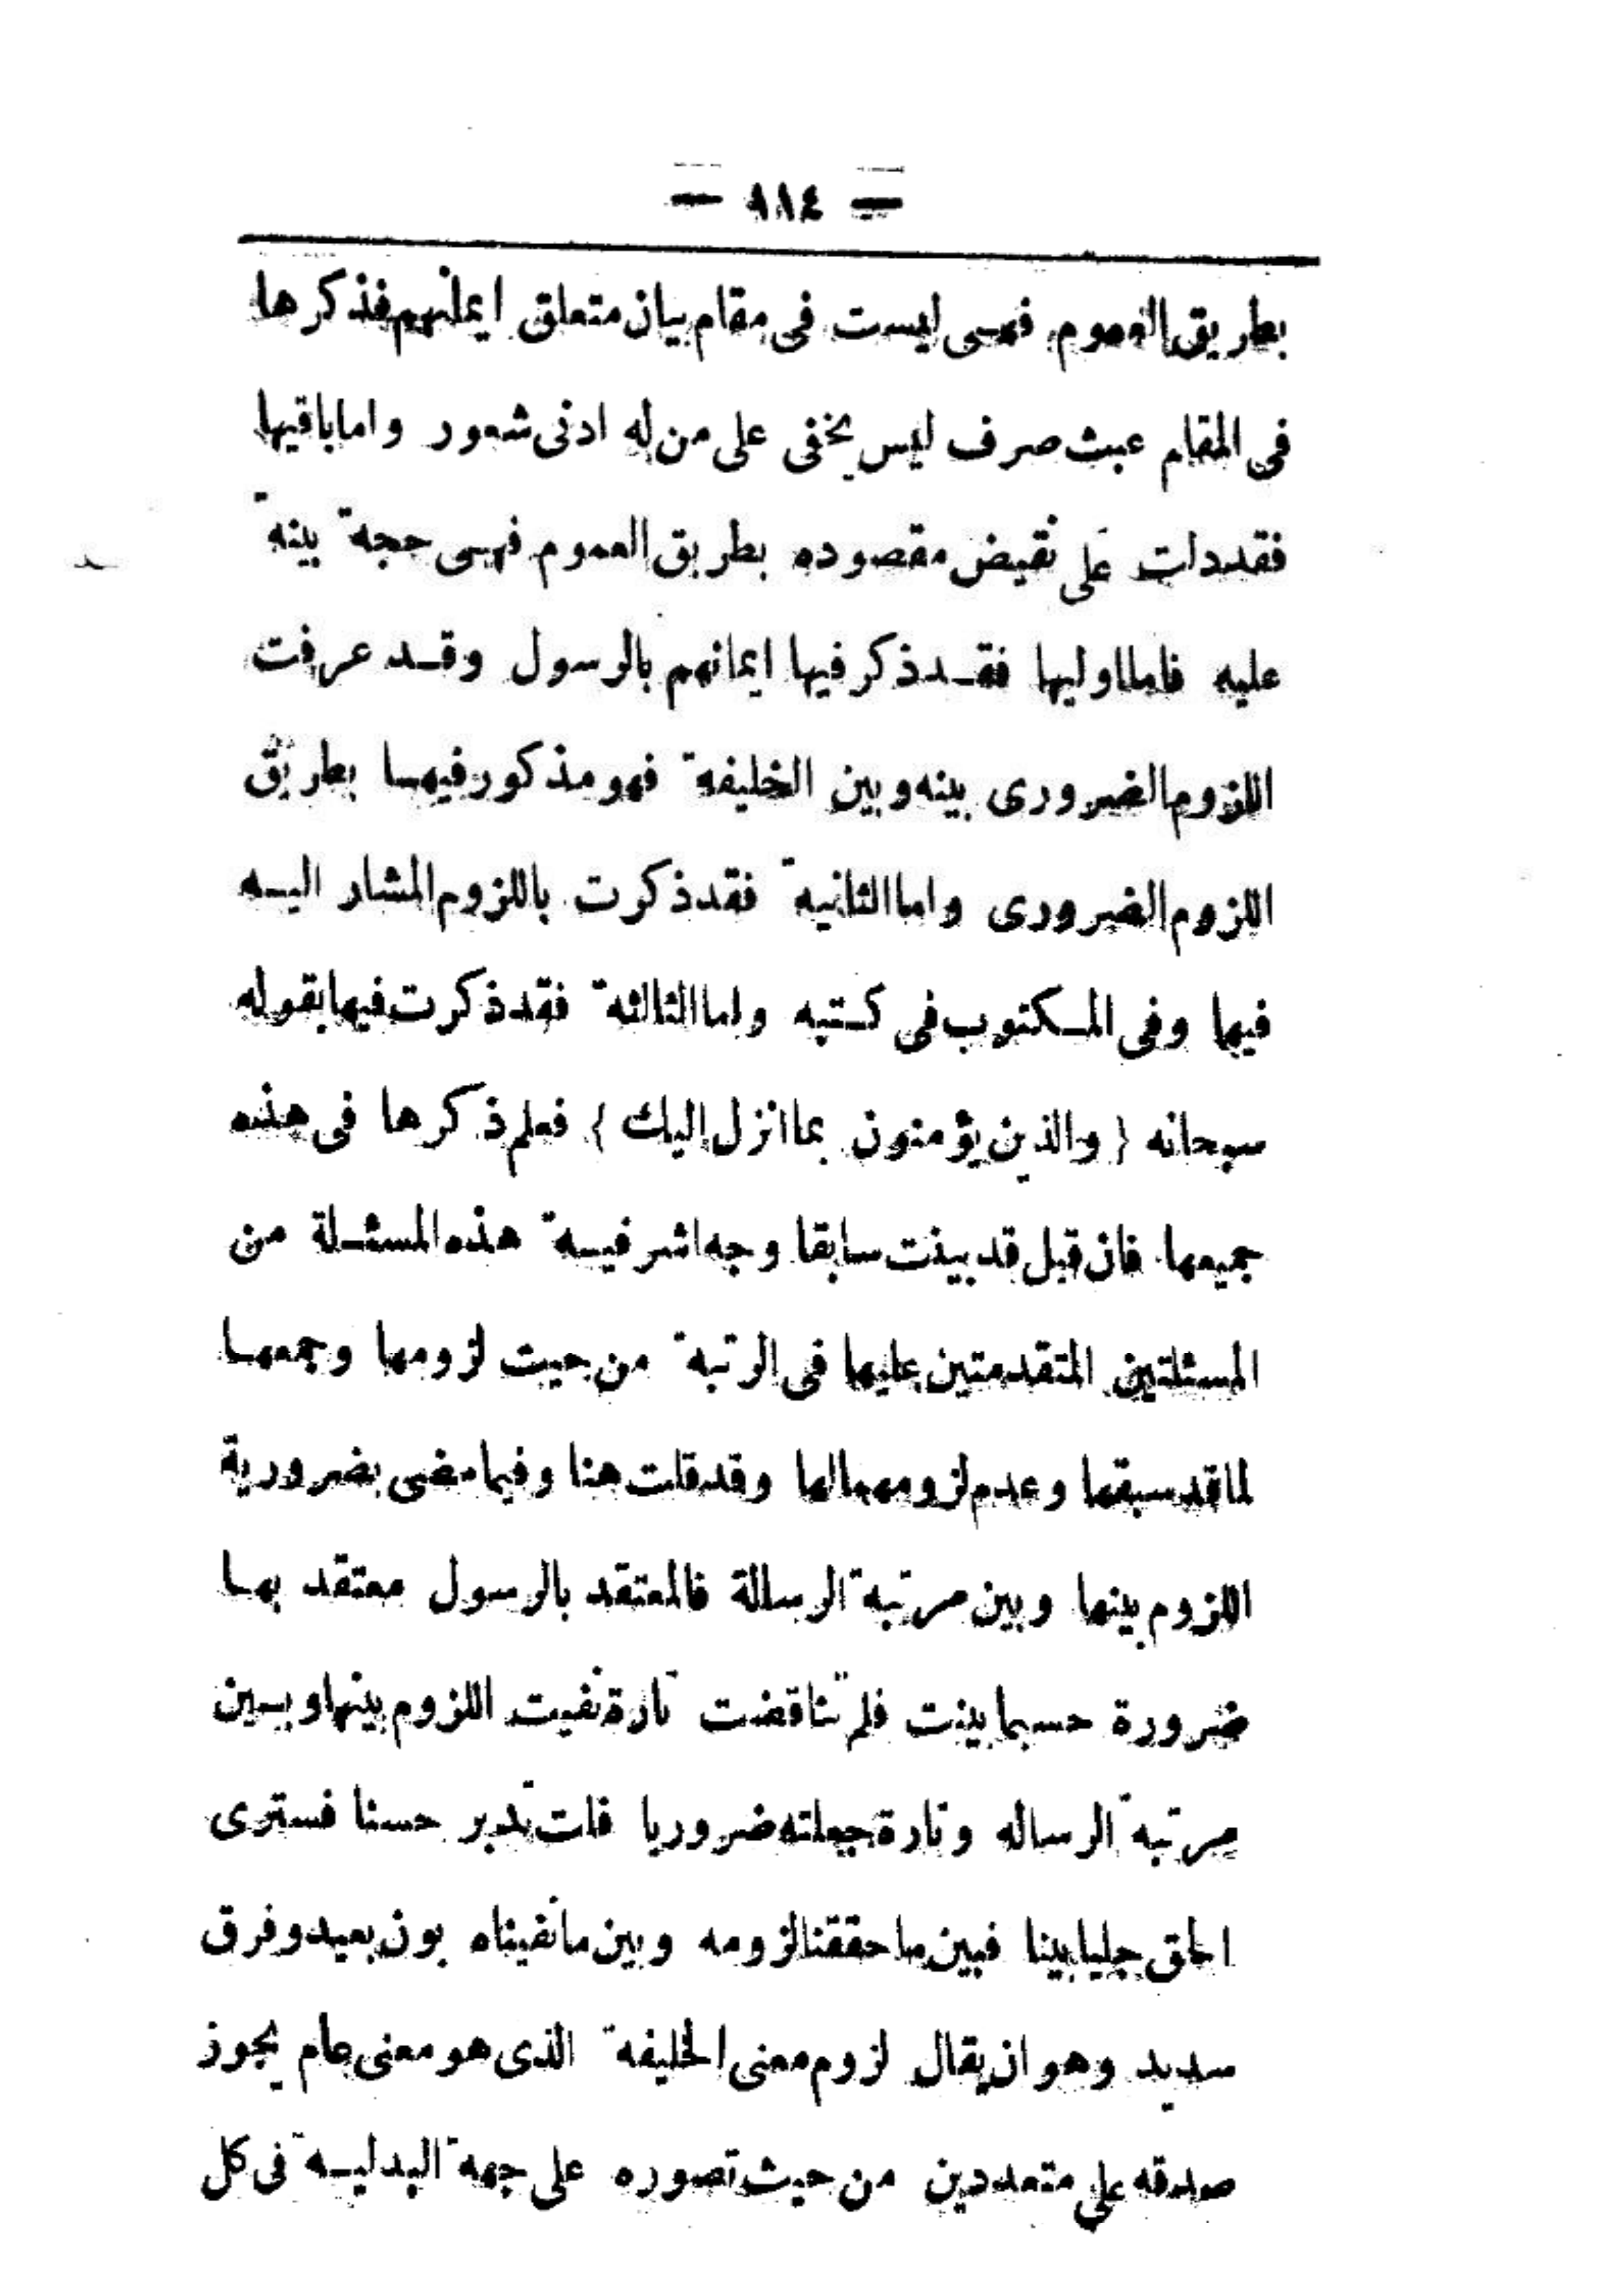 — ٩٨٤ —
بطريق العموم فهى ليست فى مقام بيان متعلق ايمانهم فذكرها
فى المقام عبث صرف ليس يخفى على من له ادنى شعور واما باقيها
فقد دلت على نقيض مقصوده بطريق العموم فهى حجة بينة
عليه فاما اوليها فقد ذكر فيها ايمانهم بالرسول وقد عرفت
اللزوم الضرورى بينه وبين الخليفة فهو مذكور فيها بطريق
اللزوم الضرورى واما الثانية فقد ذكرت باللزوم المشار اليه
فيها وفى المكتوب فى كتبه واما الثالثة فقد ذكرت فيها بقوله
سبحانه { والذين يؤمنون بما انزل اليك } فعلم ذكرها فى هذه
جميعها فان قيل قد بينت سابقا وجه اشرفية هذه المسئلة من
المسئلتين المتقدمتين عليها فى الرتبة من حيث لزومها وجمعها
لما قد سبقها وعدم لزومهما لها وقد قلت هنا وفيما مضى بضرورية
اللزوم بينها وبين مرتبة الرسالة فالمعتقد بالرسول معتقد بها
ضرورة حسبما بينت فلم تناقضت تارة نفيت اللزوم بينها وبين
مرتبة الرساله وتارة جعلته ضروريا قلت تدبر حسنا فسترى
الحق جليا بينا فبين ما حققنا لزومه وبين ما نفيناه بون بعيد وفرق
سديد وهو ان يقال لزوم معنى الخليفة الذى هو معنى عام يجوز
صدقه على متعددين من حيث تصوره على جهة البدلية فى كل